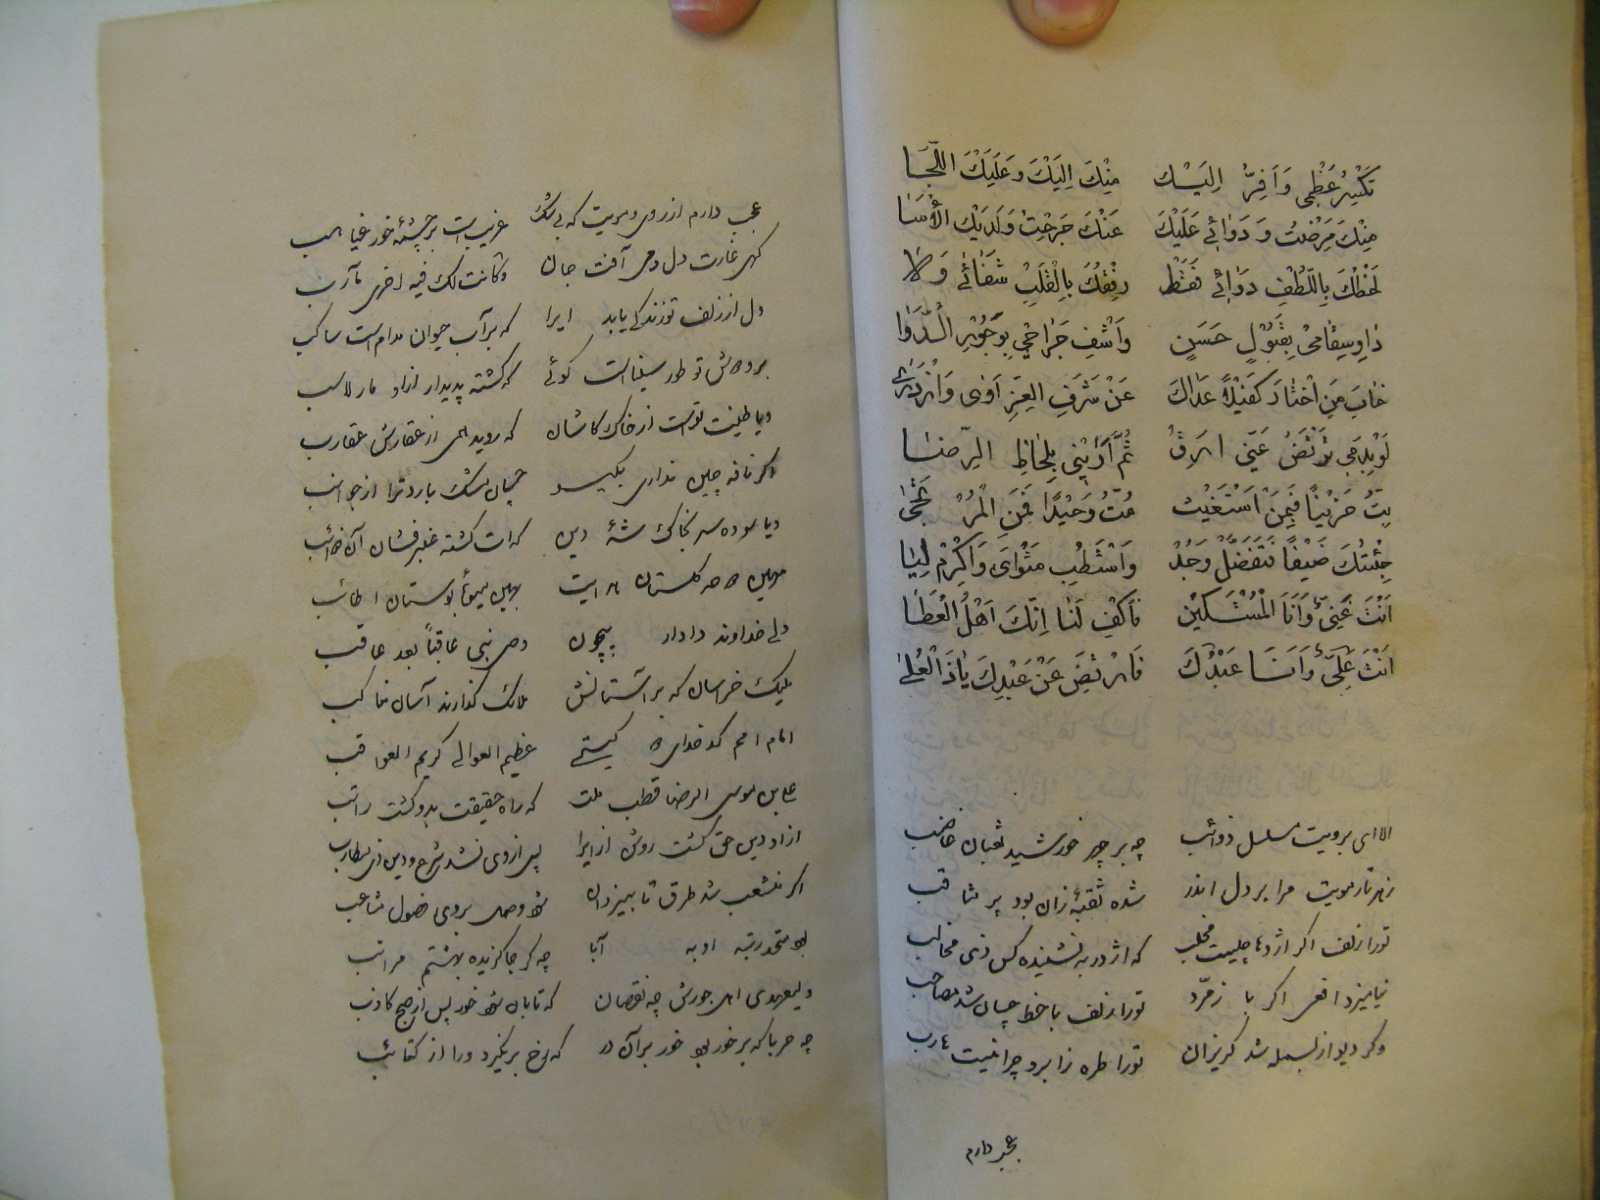 تَكْسِيرُ عَظْمِي وَ اَفِرُّ اِلَيْكَ مِنْكَ اِلَيْكَ وَ عَلَيْكَ اللَّجَا
مِنْكَ مَرِضْتُ وَ دَوَائِي عَلَيْكَ عَنْكَ جَرَحْتُ وَ لَدَيْكَ الْأُسَا
لَحْظُكَ بِاللُّطْفِ دَوَائِي فَقَطْ رِفْقُكَ بِالْقَلْبِ شِفَائِي وَ لَا
دَاوِ سِقَامِي بِقَبُولٍ حَسَنٍ وَ اشْفِ جِرَاحِي بِوُجُوبِ الدَّوَا
خَابَ مَنِ اخْتَارَ كَفِيلاً عَدَاكَ عَنْ شَرَفِ الْعِزِّ
لَوْ بِدَمِي تَرْضَ عَنِّي اَرِقْ ثُمَّ اَرِيْنِي بِلِحَاظِ الرِّضَا
بِتُّ حَزِيْناً فَبِمَنْ اَسْتَغِيْثُ مُتُّ وَحِيْدًا فَمَنِ الْمُرْتَجَى
جِئْتُكَ ضَيْفًا فَتَفَضَّلْ وَ جُدْ مَثْوَايَ وَ اَكْرِمْ لِيَا
اَنْتَ غَنِيٌّ وَ اَنَا الْمُسْتَكِيْنُ فَاكْفِ لَنَا اِنَّكَ اَهْلُ الْعَطَا
اَنْتَ عَلِيٌّ وَ اَنَا عَبْدُكَ فَارْضَ عَنْ عَبْدِكَ يَا ذَا الْعُلَى
الا ای برویت مسلسل ذوائب چه بر چهر خورشید ثعبان غاضب
زهر تار مویت مرا بر دل اندر شده ثقبهٔ زان بود پر ثاقب
تو را زلف اگر اژدها چلیپت مخلب که اژدر به نشنیده کس ذی مخالب
نیامیزد افعی اگر با زمرّد تو را زلف با خط چسان شد مصاحب
وگر دیو از بسمله شد گریزان تو را طره ز ابرو چرا نیست هارب
عجب دارم
عجب دارم از روی و مویت که بی شک غریبست بر چشمهٔ خور غیاهب
گهی غارت دل دمی آفت جان وکانت لک فیه اخری مآرب
دل از زلف تو زندگی یابد ایرا که بر آب حیوان مدام است ساکب
بر دوش تو طور سینا است گوئی که گشته پدیدار ازاو مار لاسب
و یا طینت تو است از خاک کاشان که روید همی از عقارش عقارب
اگر نافه چین نداری بگیسو چسان مشک بارد ترا از جوانب
و یا سوده سر بخاک شهٔ دین که ات گشته عنبرفشان آن ضرائب
مهین گلستان هدایت بهین بوستان اطائب
ولی خداوند دادار بیچون وصی نبی عاقباً بعد عاقب
ملیک خراسان که بر آستانش ملائک گذارند آسان مناکب
امام امم کدخدای گیتی عظیم العوالی کریم العواقب
علی بن موسی الرضا قطب ملت که راه حقیقت بدو گشت راتب
از او دین حق گشت روشن ازیرا پس از وی نشد شرع و دین
اگر منشعب شد طرق تا بیزدان وصل بروی فضول مشاعب
بود متحد رتبه او به آبا چه گر جا گزیده بهشتم مراتب
ولیعهدی اهل جورش چه نقصان که تابان شود خور پس از صبح کاذب
چه حربا که بر خور بود خور بر آن در که رخ بر نگیرد ورا از کتائب